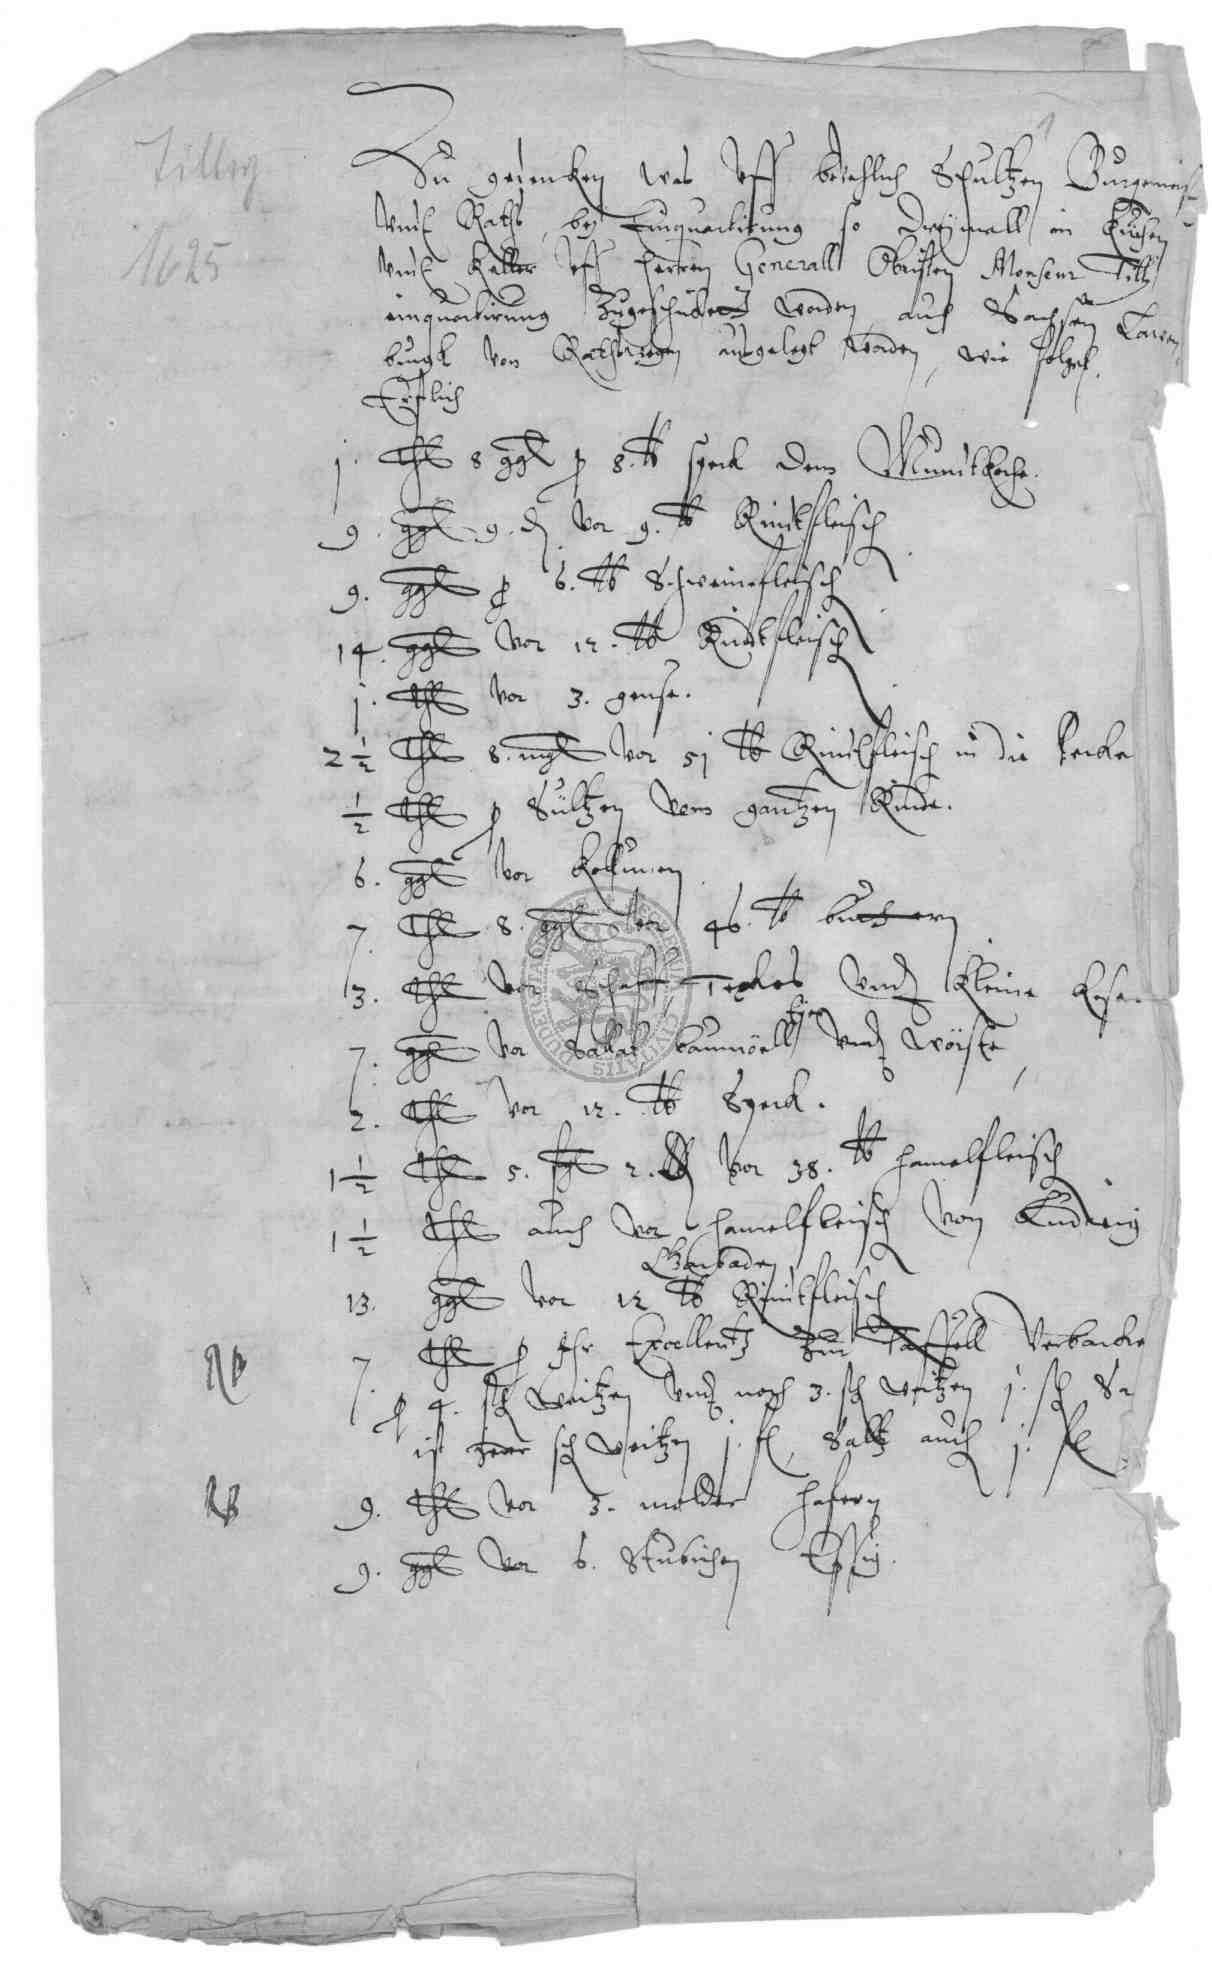 Tilly
1625
Zu gedencken was vff bevehlich Schultzen Burgemeis-
vndt Raths, bey Einquartirung so dreymall in Kuchen
vndt Keller vff herren Generall Obristen Monseur Tilli
einquartirung zugeschickett worden, auch Sachsen Lawen
burgk von Rathswegen ausgelegt worden, wie folget.
Erstlich
j. thl 8 ggl p 8. lb speck dem Mundtkoche.
9. ggl 9. d vor 9. lb Rindtfleisch
9. ggl p 6. lb Schweinefleisch
14. ggl vor 12. lb Rindtfleisch
j. thl vor 3. gense.
2 1/2 thl 8. mgl vor 51 lb Rindtfleisch in die
1/2 thl p Sültzen vom gantzen Rinde.
6. ggl vor
7. thl 8. ggl vor 46. lb buttern
3. thl vor Schaff vnd kleine kese.
7. ggl vor Sallat, baumöell vnd
2. thl vor 12. lb Speck.
1 1/2 thl 5. 2. d vor 38. lb hamelfleisch
1 1/2 thl auch vor hamelfleisch von Ludwig
13. ggl vor 12 lb Rindtfleisch
NB 7. thl p Ihr Excellentz zur Taffell verbacke
p 4. sch weitzen vnd noch 3. sch weitzen j. sch
ist sch weitzen j. fl, Saltz auch j. fl
NB 9. thl vor 3. molder hafern
9. ggl vor 6. Stubichen Essig.